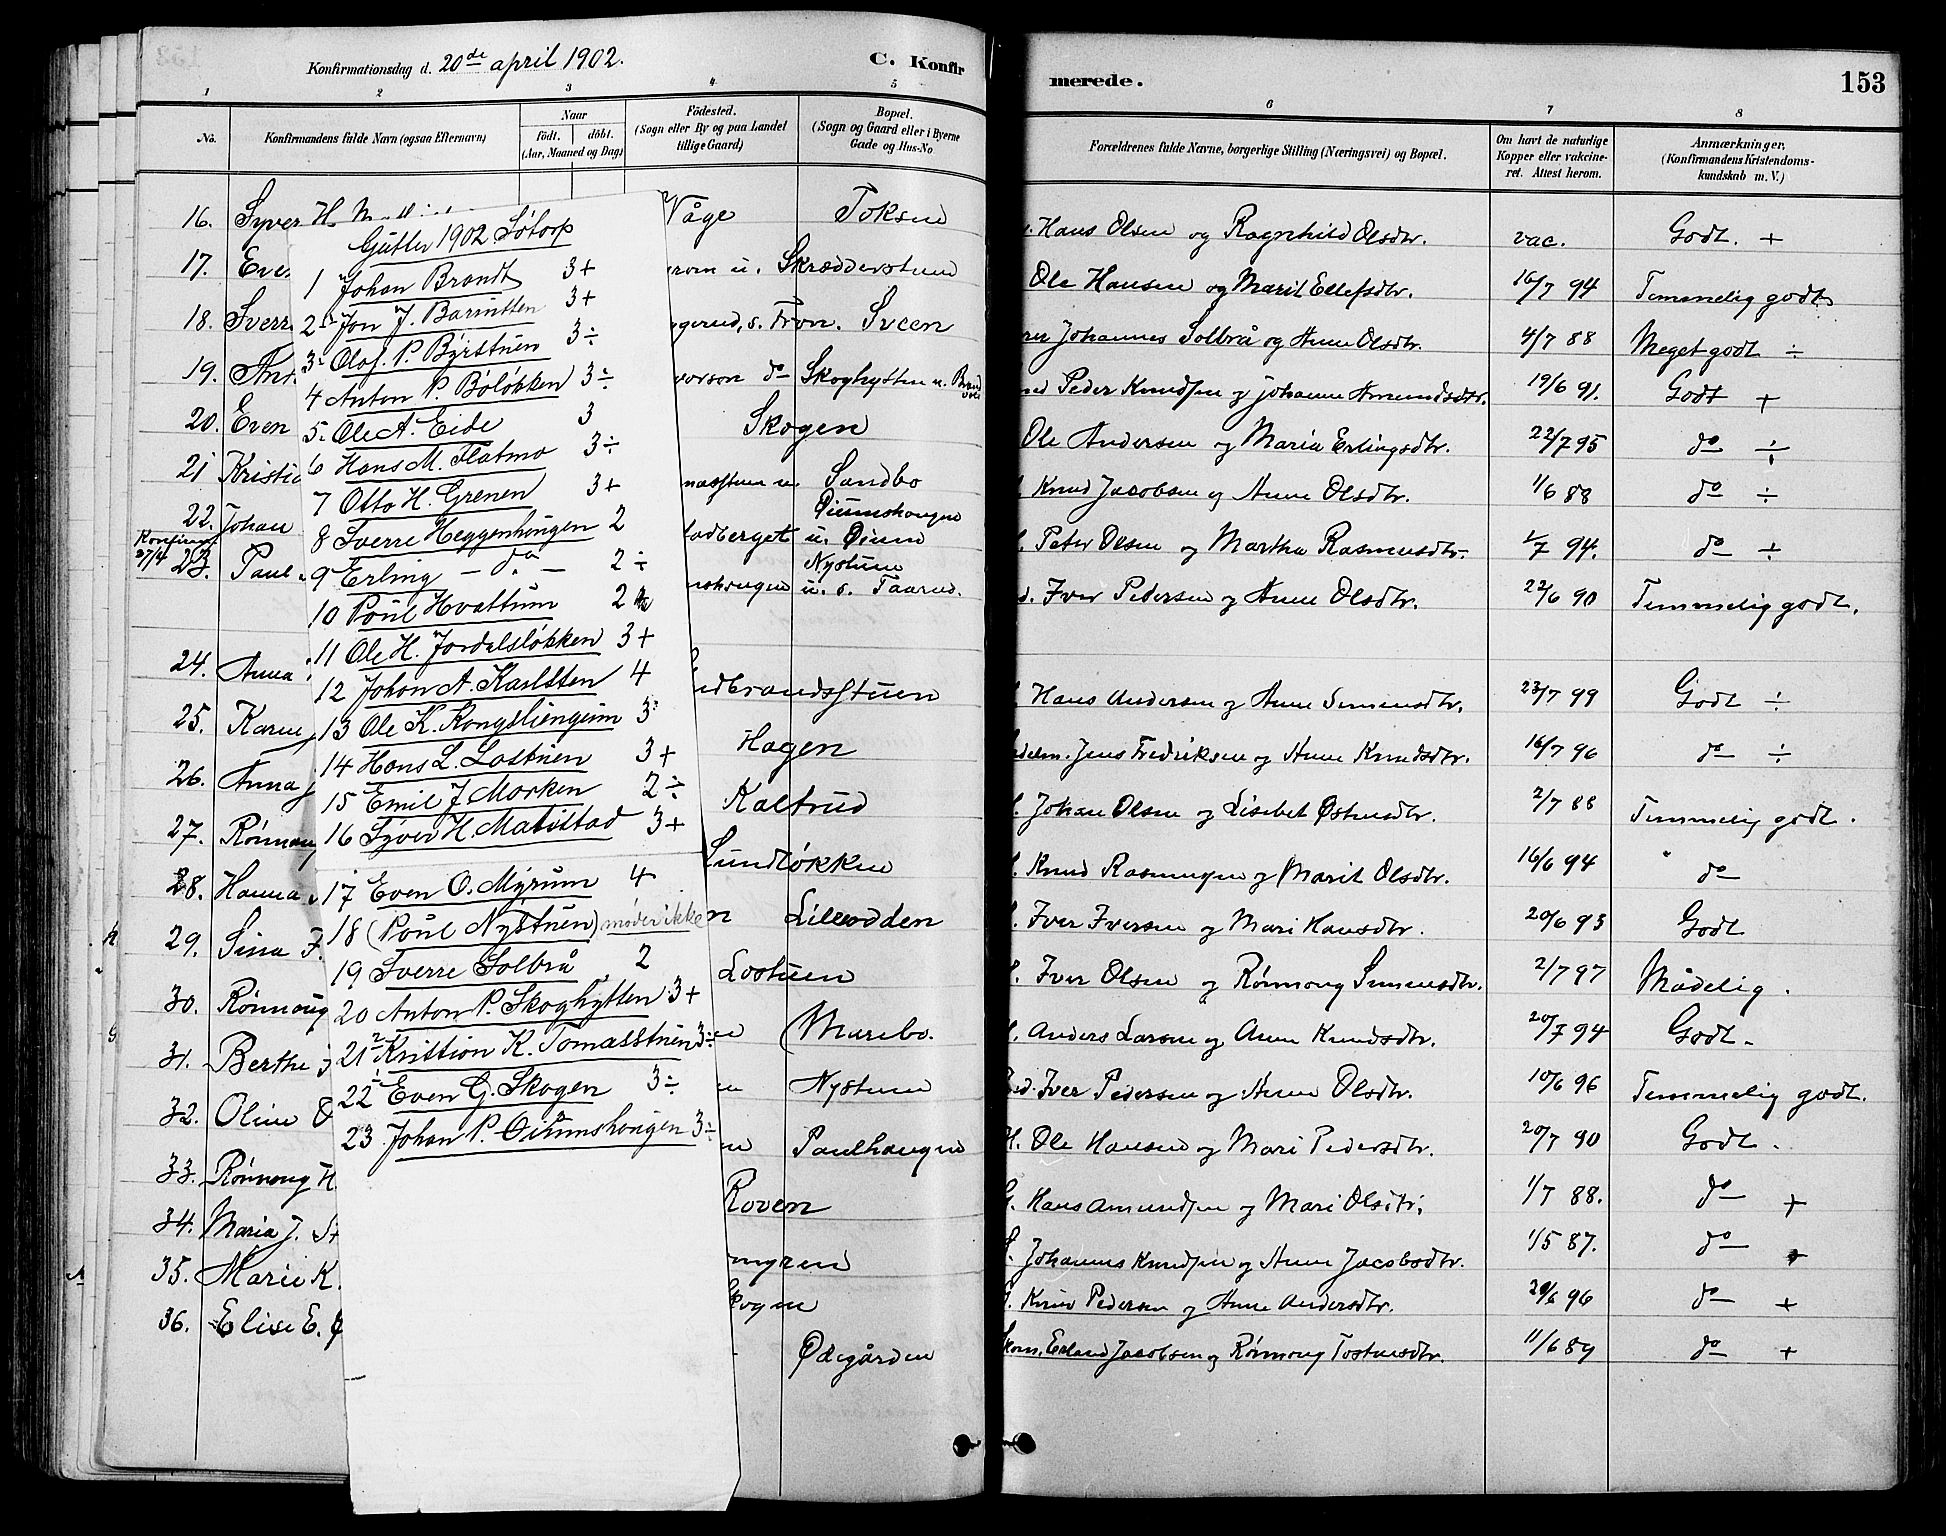 Konfirmationsdag d. 20de april 1902.
C. Konfirmerede.
153
1 2 3 4 5 6 7 8
No.
Konfirmandens fulde Navn (ogsaa Efternavn)
Naar
födt. döbt.
(Aar, Maaned og Dag)
Födested.
(Sogn eller By og paa Landet
tillige Gaard)
Bopæl.
(Sogn og Gaard eller i Byerne
Gade og Hus-No.
Forældrenes fulde Navne, borgerlige Stilling (Næringsvei) og Bopæl.
Om havt de naturlige
Kopper eller vakcine-
ret. Attest herom.
Anmærkninger.
(Konfirmandens Kristendoms-
kundskab m. V.)
16. Syver H. Våge Toksen Hans Olsen og Ragnhild Olsdtr. vac. Godt. +
17. Even Skrædderstuen Ole Hansen og Marit Ellefsdtr. 16/7 94 Temmelig godt
18. Sverre s. Fron. Sveen Johannes Solbrå og Anne Olsdtr. 4/7 88 Meget godt ÷
19. do Skoghytten u. Peder Knudsen og Johanne Amundsdtr. 19/6 91. Godt +
20. Even Skogen Ole Andersen og Maria Erlingsdtr. 22/7 95 do ÷
21 Kristia Sandbo Knud Jacobsen og Anne Olsdtr. 1/6 88 do ÷
22. Johan Øiumshaugen
u. Øium Peter Olsen og Martha Rasmusdtr. 94. do ÷
27/4
23. Paul Nystuen
u. s. Taarud. Iver Pedersen og Anne Olsdtr. 22/6 90 Temmelig godt.
24. Anna ndbrandsstuen Hans Andersen og Anne Simensdtr. 23/7 99 Godt ÷
25. Karen Hagen Jens Fredriksen og Anne Knudsdtr. 16/7 96 do ÷
26. Anna Kaltrud Johan Olsen og Lisebet Østensdtr. 2/7 88 Temmelig godt.
27. Rønnaug Sundløkken Knud Rasmusen og Marit Olsdtr. 16/6 94 do
28. Hanna Lillerodden Iver Iversen og Mari Hansdtr. 20/6 93 Godt
29. Sina Lostuen Iver Olsen og Rønnaug Simensdtr. 2/7 97 Mådelig.
30. Rønnaug Marebo. Anders Larsen og Anne Knudsdtr. 20/7 94 Godt.
31. Berthe Nystuen Iver Pedersen og Anne Olsdtr. 10/6 96 Temmelig godt.
32. Oline Paulhaugen Ole Hansen og Mari Pedersdtr. 20/7 90 Godt.
33. Rønnaug H Roven G. Hans Amundsen og Mari Olsdtr. 1/7 88. do +
34. Maria J. myren Johannes Knudsen og Anne Jacobsdtr. 1/5 87. do +
35. Marie K. Skogen Knud Pedersen og Anne Andersdtr. 96 do +
36. Elise E. Ødegården Skom. Erland Jacobsen og Rønnaug Tostensdtr. 11/6 89 do +
Gutter 1902 Sötorp
1 Johan Brandt 3+
2 Jon J. Barnitten 3+
3 Olaf P. Byrstuen 3÷
4 Anton P. Böløkken 3÷
5 Ole A. Eide 3
6 Hans M. Flatmo 3÷
7 Otto H. Grenen 3+
8 Sverre Heggenhougen 2
9 Erling – do – 2÷
10 Poul Hvattum 2
11 Ole H. Jordalsløkken 3+
12 Johan A. Karlsten 4
13 Ole K. Kongsliengum 3
14 Hans L. Lostuen 3+
15 Emil J Morken 2÷
16 Syver H. Matistad 3+
17 Even O. Myrum 4
18 (Poul Nystuen) møder ikke
19 Sverre Solbrå 2
20 Anton P. Skoghytten 3+
21 Kristian K. Tomasstuen 3÷
22 Even G. Skogen 3÷
23 Johan P. Øiumshougen 3÷